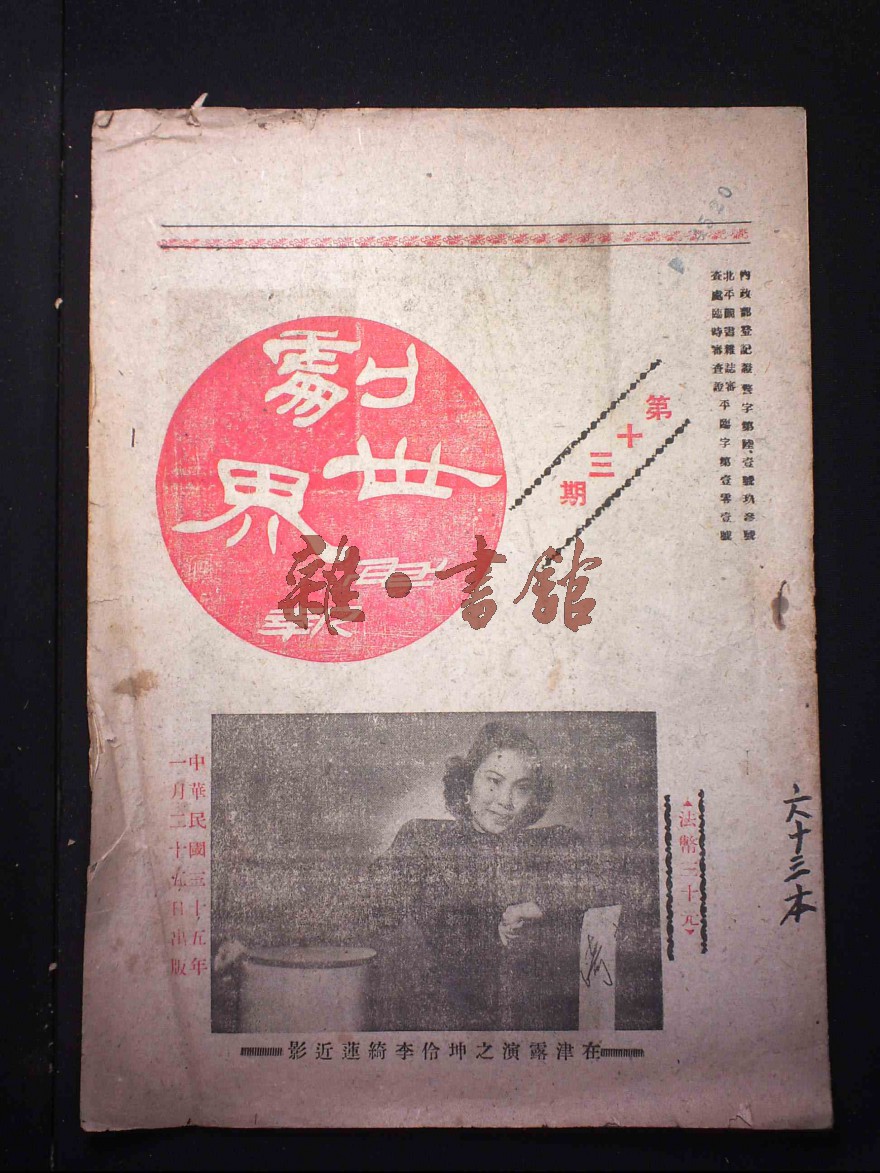 內政部登記證警字第陸壹號玖參號
北平圖書雜誌審
查處臨時審查證平臨字第壹零壹號
第十三期
劇世界
畫報
雜·書館
法幣三十元
六十三本
中華民國三十五年
一月二十五日出版
在津露演之坤伶李綺蓮近影